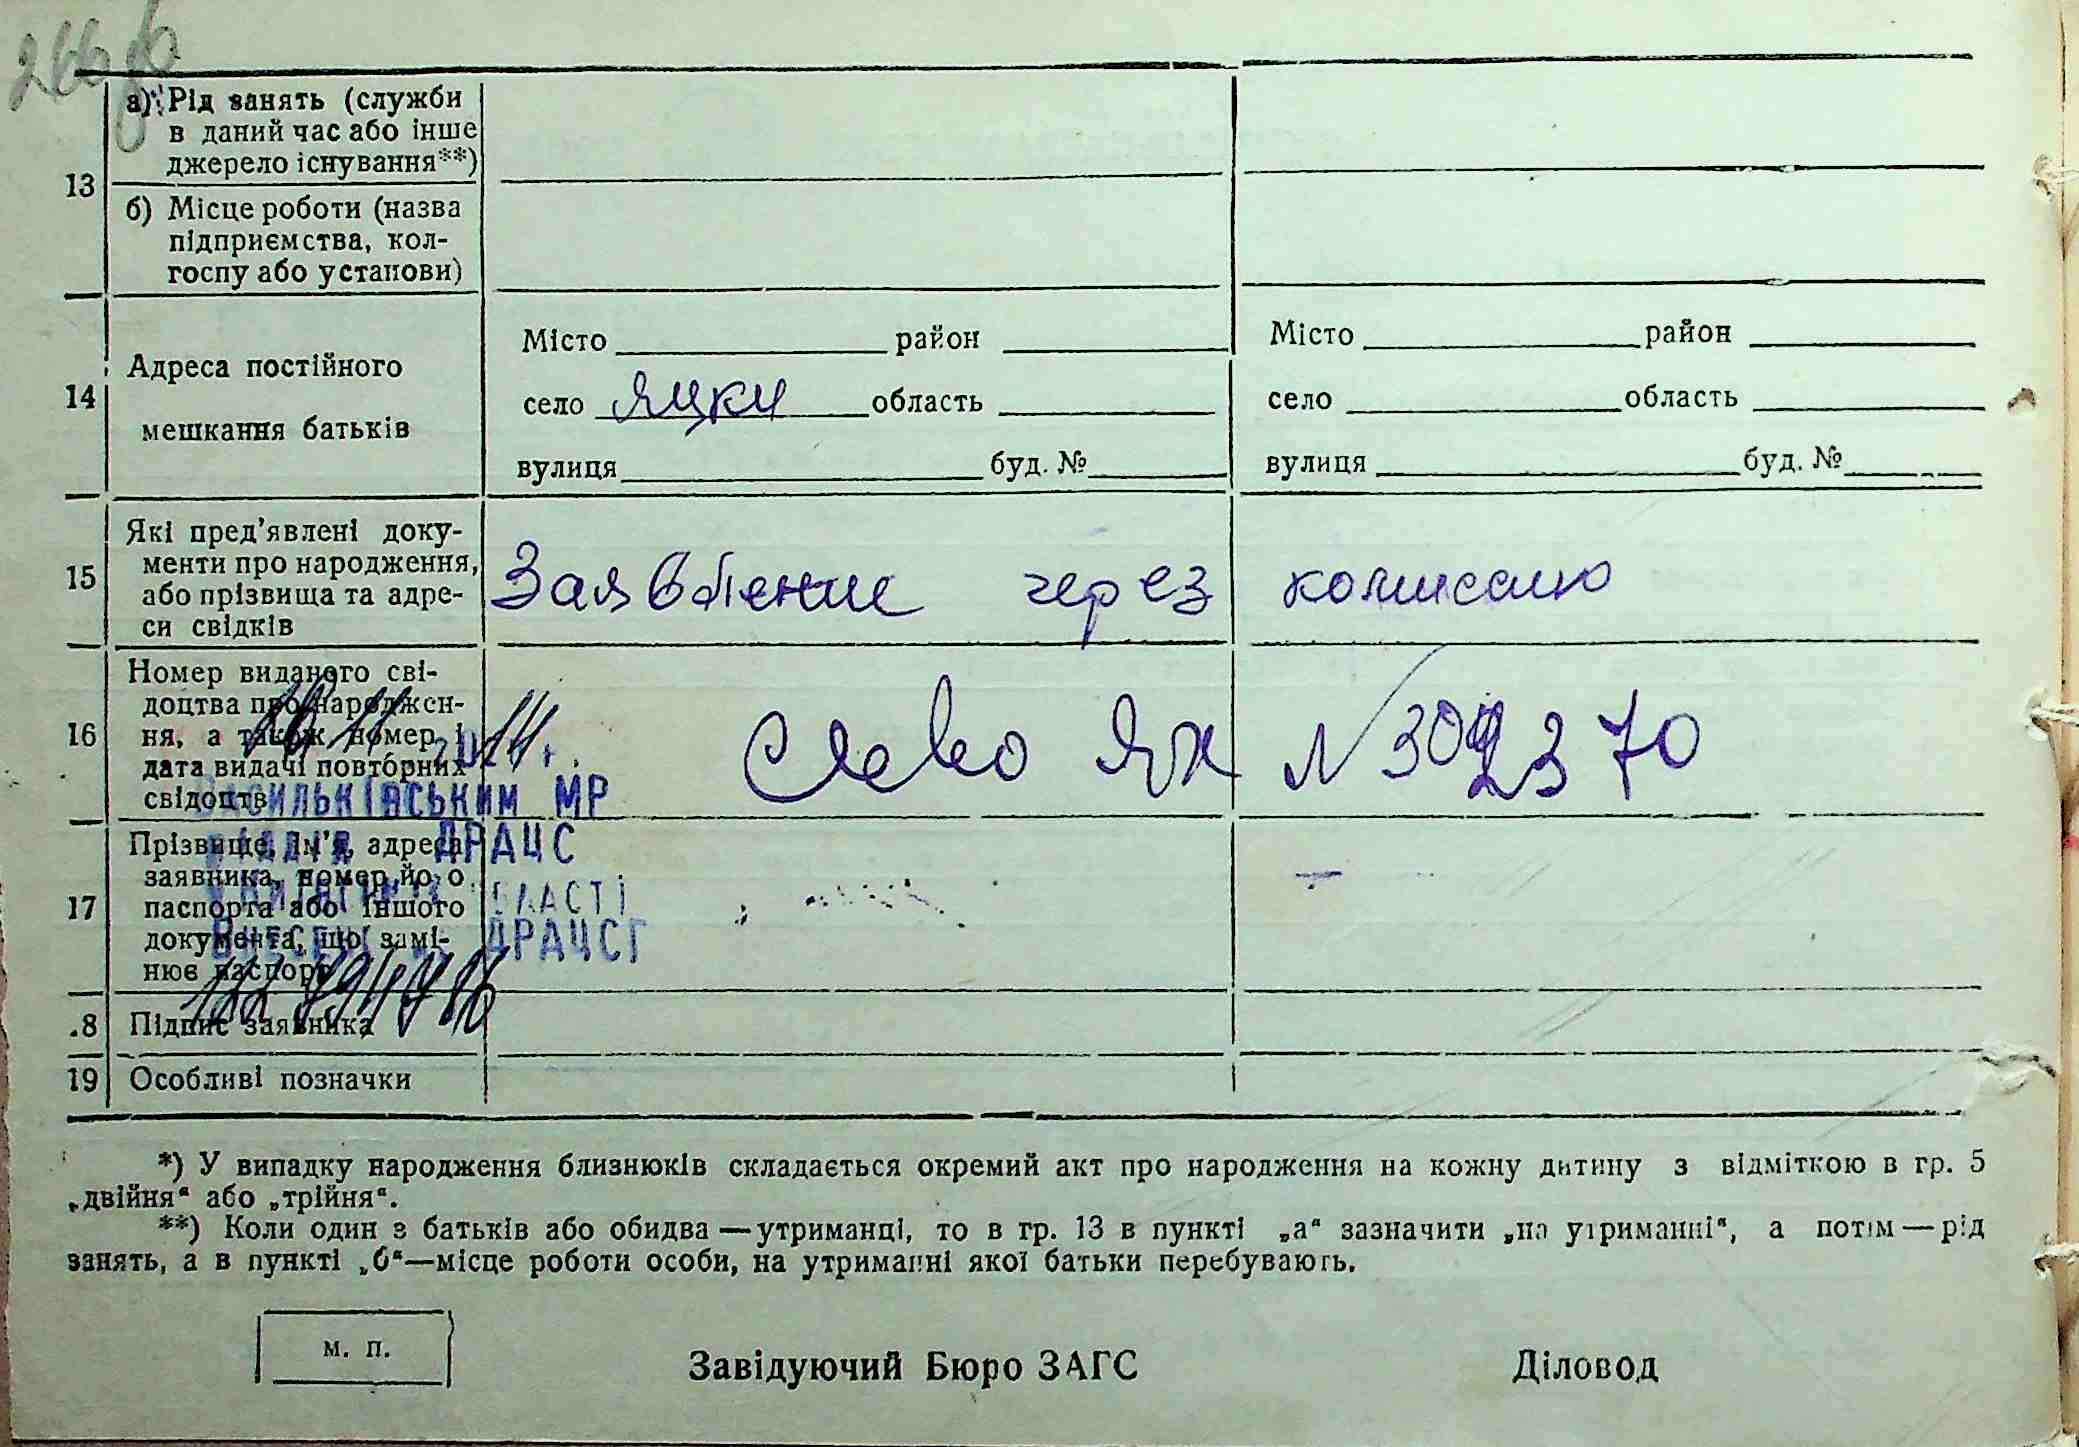 266
13
а) Рід занять (служби
в даний час або інше
джерело існування**)
б) Місце роботи (назва
підприємства, кол-
госпу або установи)
14
Адреса постійного
мешкання батьків
Місто район
село Яцки область
вулиця буд. №
Місто район
село область
вулиця буд. №
15
Які пред'явлені доку-
менти про народження,
або прізвища та адре-
си свідків
Заявление через комиссию
16
Номер виданого сві-
доцтва про народжен-
ня, а також номер і
дата видачі повторних
свідоцтв
ЯХ № 302370
2014 г.
ВАСИЛЬКІВСЬКИМ МР
ДРАЦС
ОБЛАСТІ
ДРАЦСГ
17
Прізвище, ім'я, адреса
заявника, номер його
паспорта або іншого
документа, що замі-
нює паспорт
18
Підпис заявника
19
Особливі позначки
*) У випадку народження близнюків складається окремий акт про народження на кожну дитину з відміткою в гр. 5
„двійня“ або „трійня“.
**) Коли один з батьків або обидва — утриманці, то в гр. 13 в пункті „а“ зазначити „на утриманні“, а потім — рід
занять, а в пункті „б“—місце роботи особи, на утриманні якої батьки перебувають.
м. п.
Завідуючий Бюро ЗАГС
Діловод